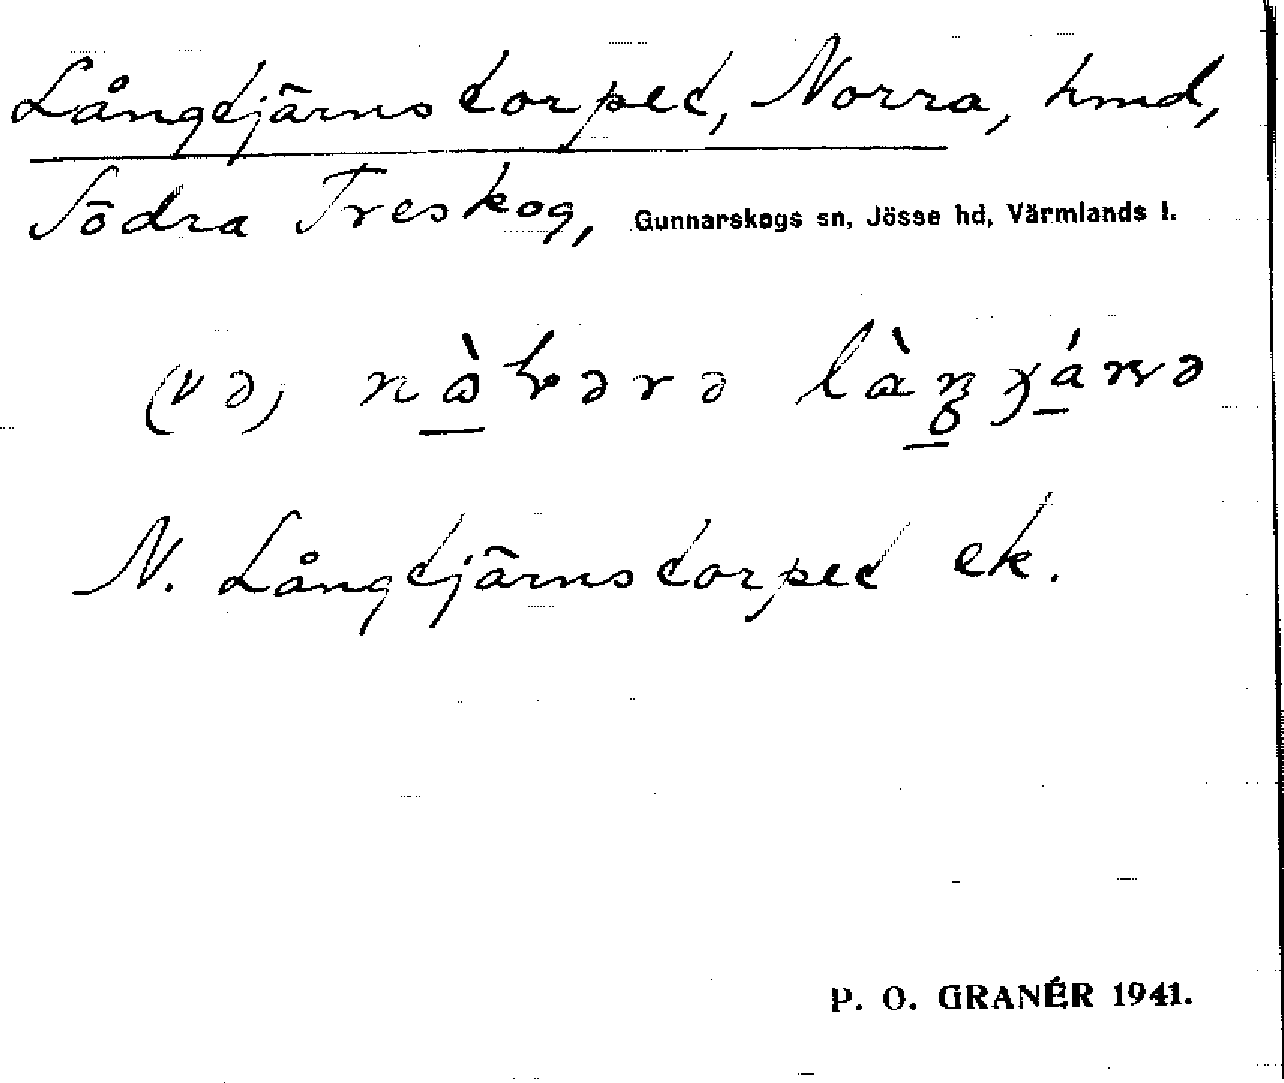 Långtjärnstorpet, Norra, hmd,
Södra Treskog, Gunnarskogs sn, Jösse hd, Värmlands l.
(və)
N. Långtjärnstorpet ek.
P. O. GRANÉR 1941.